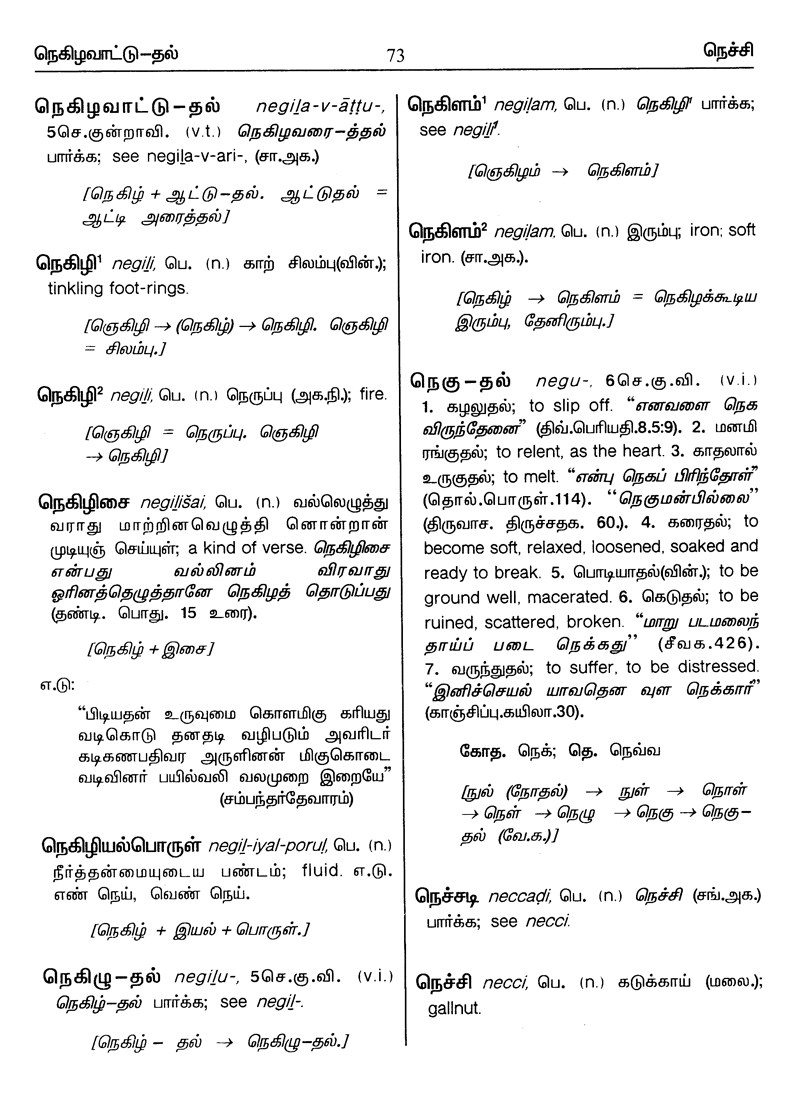 நெகிழவாட்டு–தல்
73
நெச்சி
நெகிழவாட்டு–தல் negiḻa-v-āṭṭu-,
5செ.குன்றாவி. (v.t.) நெகிழவரை–த்தல்
பார்க்க; see negiḻa-v-ari-, (சா.அக.)
[நெகிழ் + ஆட்டு–தல். ஆட்டுதல் =
ஆட்டி அரைத்தல்]
நெகிழி¹ negiḻi, பெ. (n.) காற் சிலம்பு(வின்.);
tinkling foot-rings.
[ஞெகிழி → (நெகிழ்) → நெகிழி. ஞெகிழி
= சிலம்பு.]
நெகிழி² negiḻi, பெ. (n.) நெருப்பு (அக.நி.); fire.
[ஞெகிழி = நெருப்பு. ஞெகிழி
→ நெகிழி]
நெகிழிசை negiḻišai, பெ. (n.) வல்லெழுத்து
வராது மாற்றினவெழுத்தி னொன்றான்
முடியுஞ் செய்யுள்; a kind of verse. நெகிழிசை
என்பது வல்லினம் விரவாது
ஓரினத்தெழுத்தானே நெகிழத் தொடுப்பது
(தண்டி. பொது. 15 உரை).
[நெகிழ் + இசை]
எ.டு:
“பிடியதன் உருவுமை கொளமிகு கரியது
வடிகொடு தனதடி வழிபடும் அவரிடர்
கடிகணபதிவர அருளினன் மிகுகொடை
வடிவினர் பயில்வலி வலமுறை இறையே”
(சம்பந்தர்தேவாரம்)
நெகிழியல்பொருள் negiḻ-iyal-poruḷ, பெ. (n.)
நீர்த்தன்மையுடைய பண்டம்; fluid. எ.டு.
எண் நெய், வெண் நெய்.
[நெகிழ் + இயல் + பொருள்.]
நெகிழு–தல் negiḻu-, 5செ.கு.வி. (v.i.)
நெகிழ்–தல் பார்க்க; see negiḻ-.
[நெகிழ் – தல் → நெகிழு–தல்.]
நெகிளம்¹ negiḷam, பெ. (n.) நெகிழி¹ பார்க்க;
see negiḻi¹.
[ஞெகிழம் → நெகிளம்]
நெகிளம்² negiḷam, பெ. (n.) இரும்பு; iron; soft
iron. (சா.அக.).
[நெகிழ் → நெகிளம் = நெகிழக்கூடிய
இரும்பு, தேனிரும்பு.]
நெகு–தல் negu-, 6செ.கு.வி. (v.i.)
1. கழலுதல்; to slip off. “எனவளை நெக
விருந்தேனை” (திவ்.பெரியதி.8.5:9). 2. மனமி
ரங்குதல்; to relent, as the heart. 3. காதலால்
உருகுதல்; to melt. “என்பு நெகப் பிரிந்தோள்”
(தொல்.பொருள்.114). “நெகுமன்பில்லை”
(திருவாச. திருச்சதக. 60.). 4. கரைதல்; to
become soft, relaxed, loosened, soaked and
ready to break. 5. பொடியாதல்(வின்.); to be
ground well, macerated. 6. கெடுதல்; to be
ruined, scattered, broken. “மாறு படமலைந்
தாய்ப் படை நெக்கது” (சீவக.426).
7. வருந்துதல்; to suffer, to be distressed.
“இனிச்செயல் யாவதென வுள நெக்கார்”
(காஞ்சிப்பு.கயிலா.30).
கோத. நெக்; தெ. நெவ்வ
[நுல் (நோதல்) → நுள் → நொள்
→ நெள் → நெழு → நெகு → நெகு–
தல் (வே.க.)]
நெச்சடி neccaḍi, பெ. (n.) நெச்சி (சங்.அக.)
பார்க்க; see necci.
நெச்சி necci, பெ. (n.) கடுக்காய் (மலை.);
gallnut.